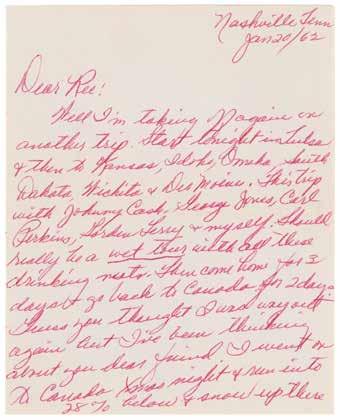 Nashville Tenn
Jan 20/62
Dear Ree:
Well I'm taking off again on
another trip. Start tonight in Tulsa
& then to Kansas, Idoho, Omaha, South
Dakota, Wichita & Des Moines. This trip
with Johnny Cash, George Jones, Carl
Perkins, Gorden Terry & myself. Should
really be a wet tour with all these
drinking nuts. Then come home for 3
days & go back to Canada for 2 days.
Guess you thought I was way out
again but I've been thinking
about you dear friend. I went on
to Canada Xmas night & run into
28% below & snow up there